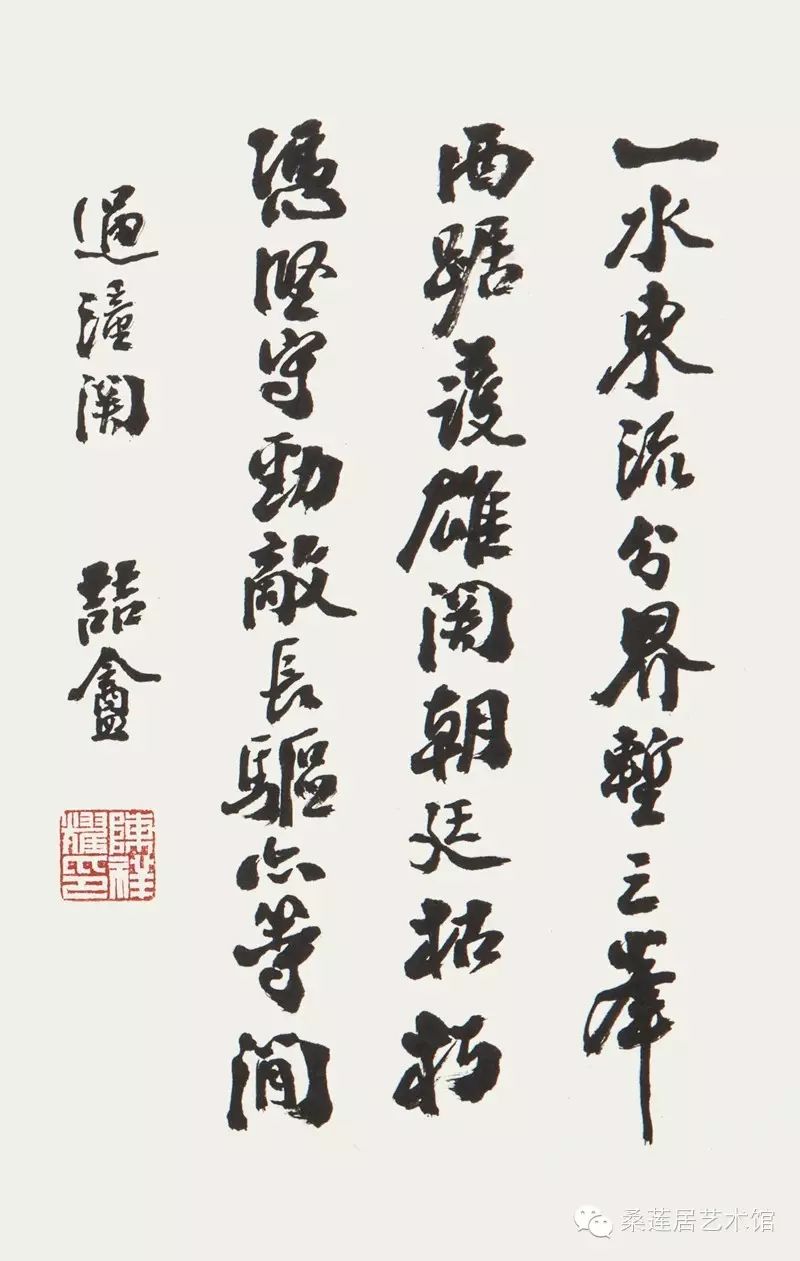 一水東流分界塹三峯
西踞護雄関朝廷枯朽
憑堅守勁敵長驅亦等閒
過潼関 喆盦
陳祥耀印
桑莲居艺术馆